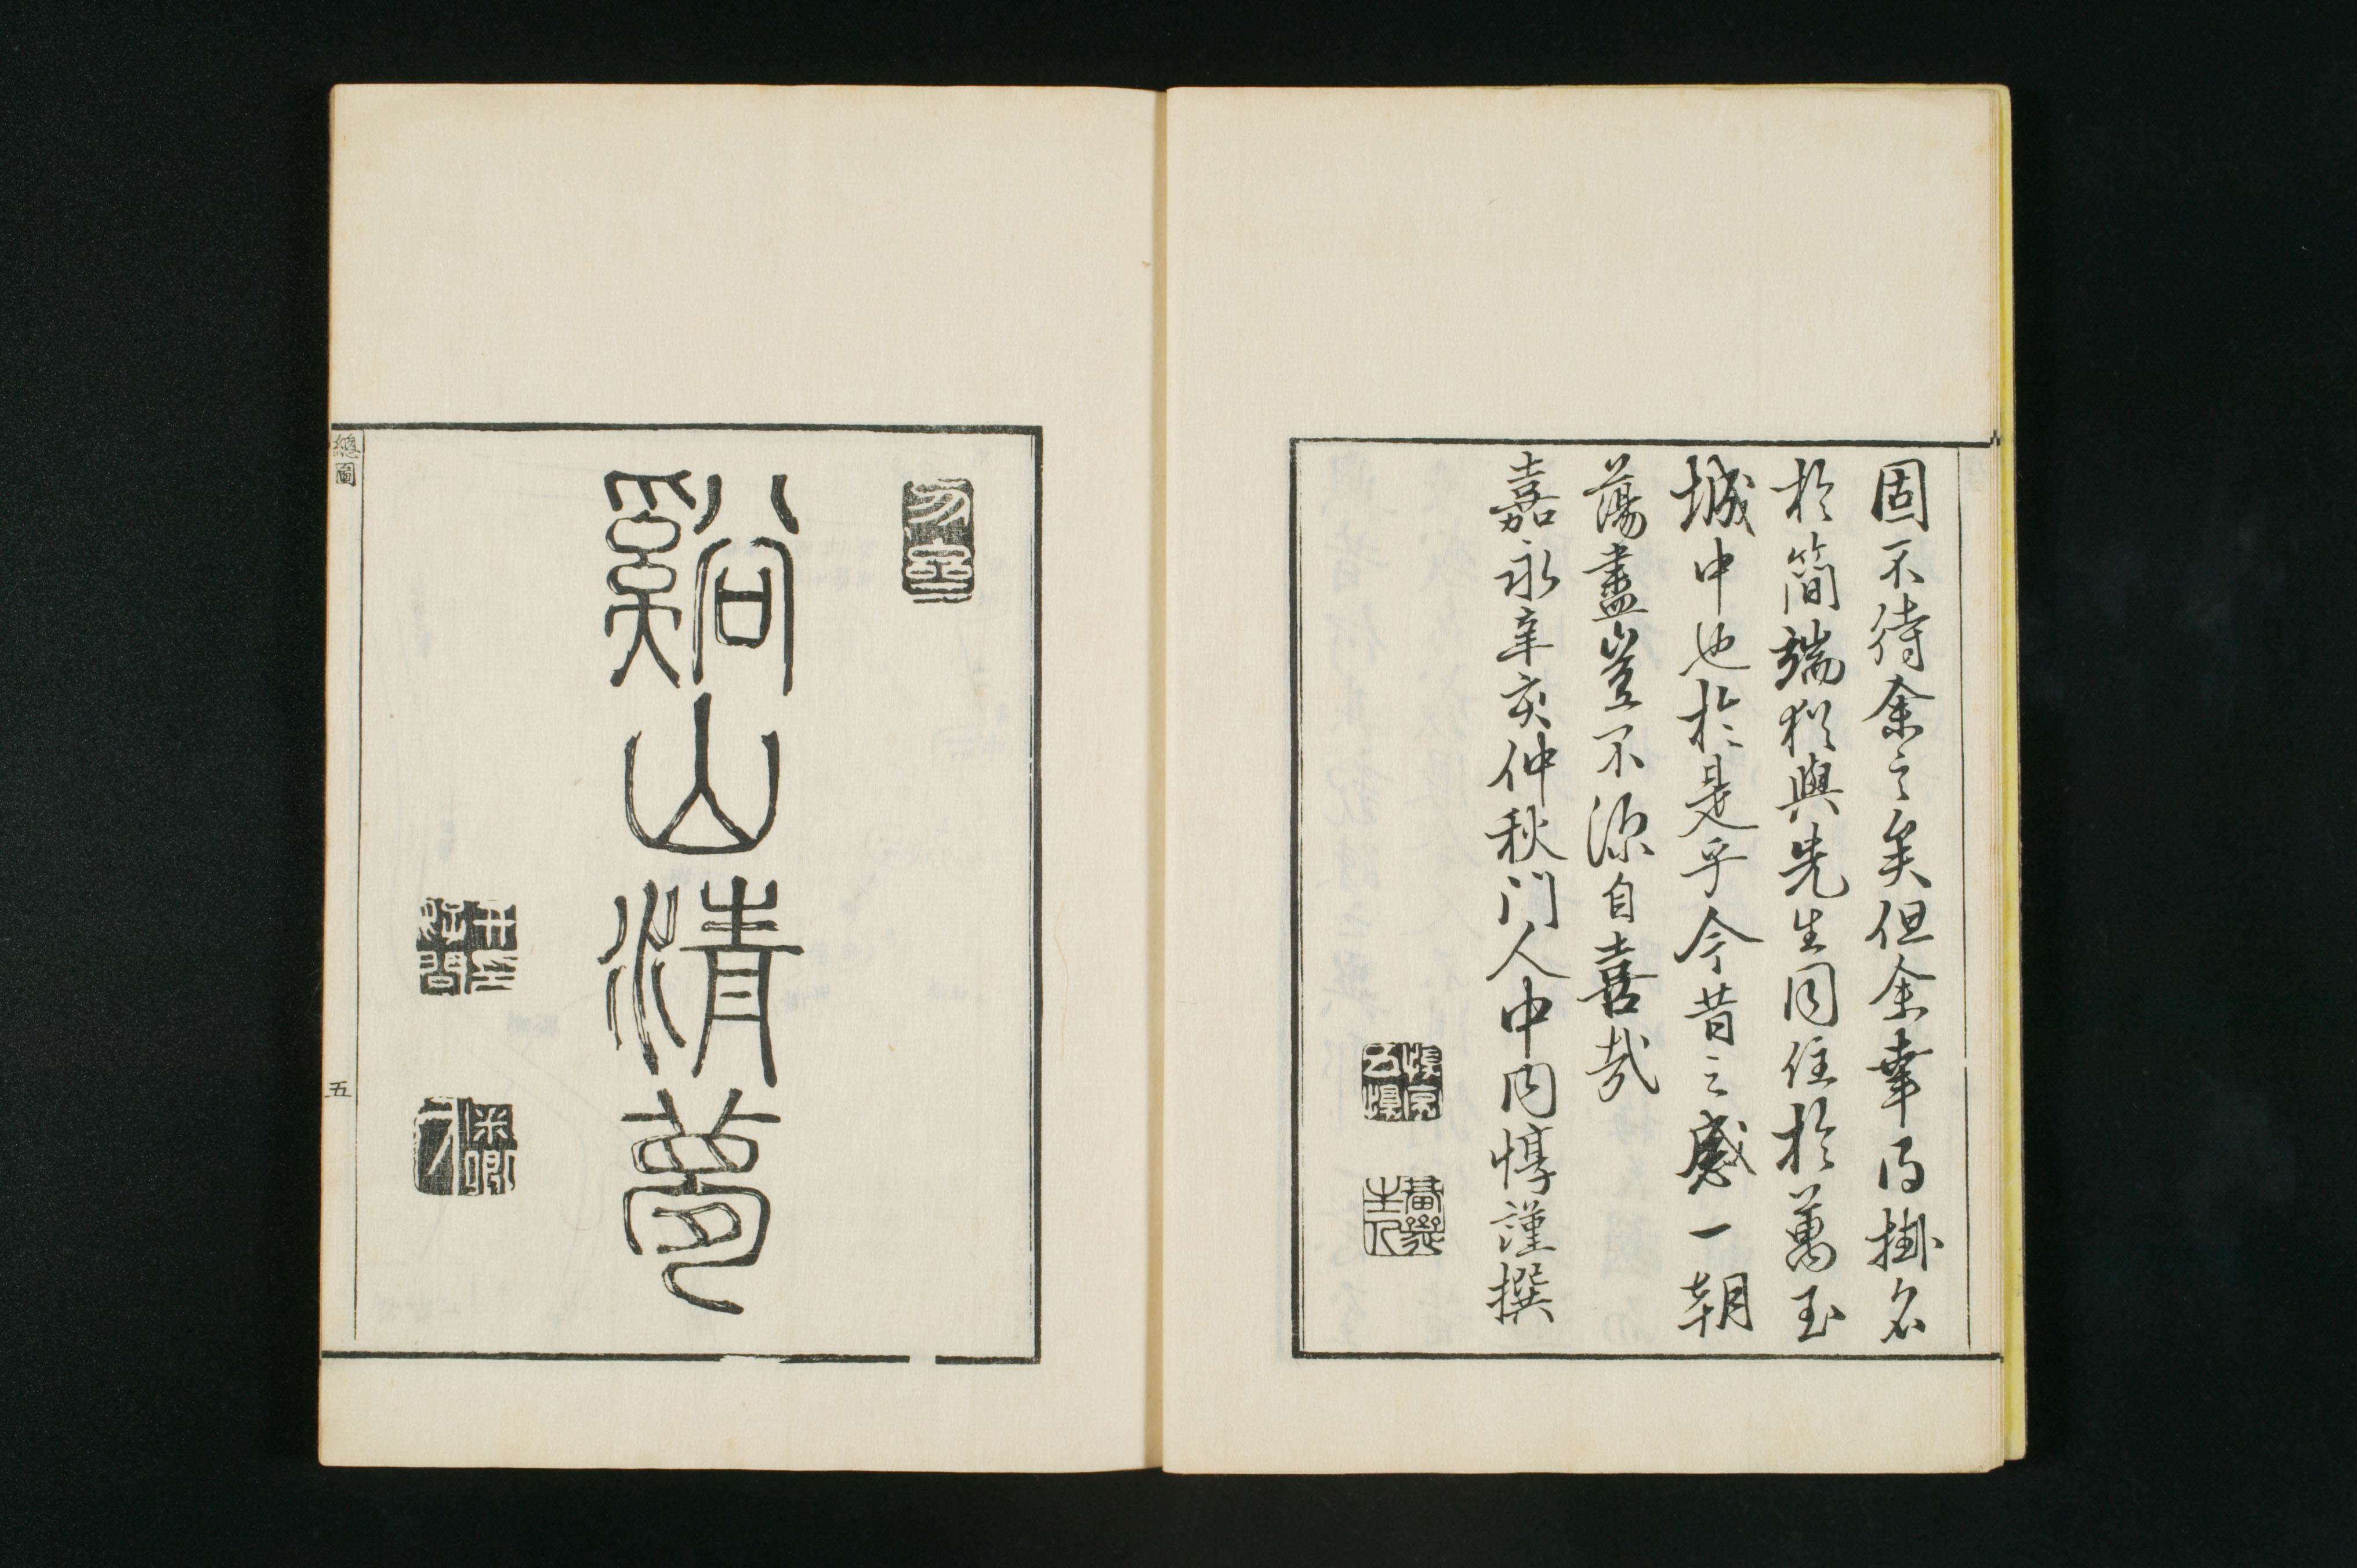 固不待余之矣但余幸得掛名
於簡端猶與先生同住於萬玉
城中也於是乎今昔之感一朝
蕩盡豈不深自喜哉
嘉永辛亥仲秋門人中内惇謹撰
谿山清夢
總圖
五